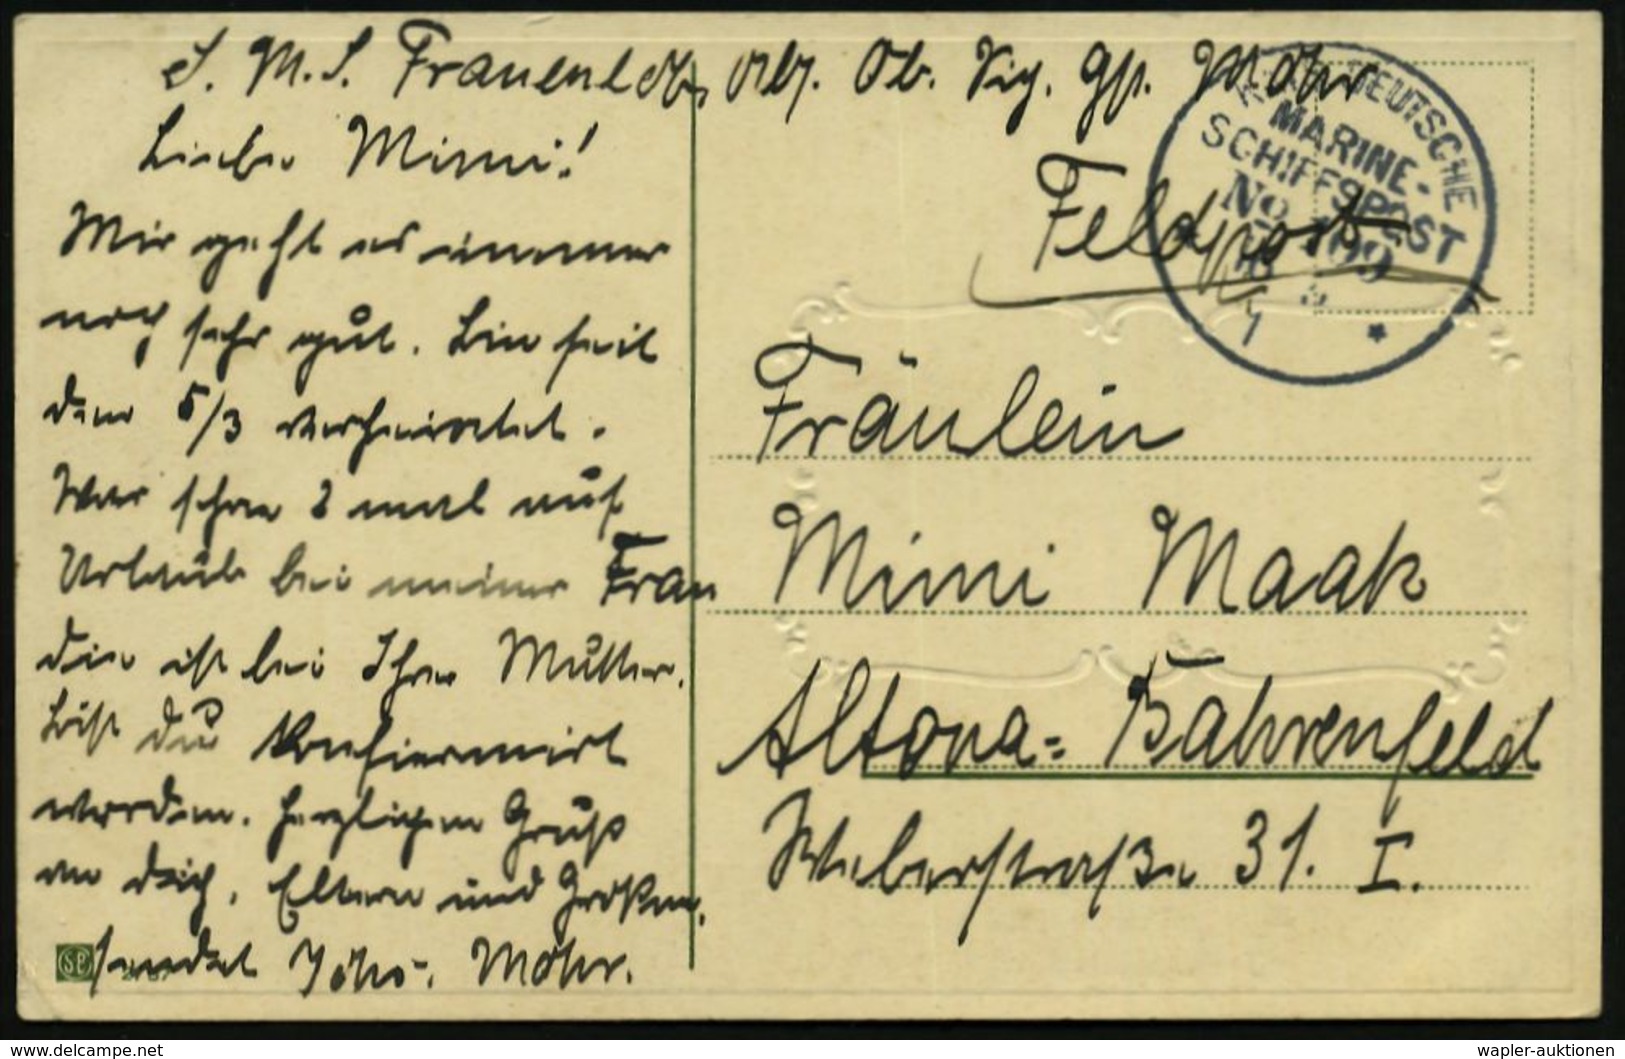 S. M. S. Frauenlob, Abs. Ob. Sig. Gst. Mohr
Liebe Mimi!
Mir geht es immer
noch sehr gut. Bin seit
dem 5/3 verheiratet.
War schon 2 mal auf
Urlaub bei meiner Frau
die ist bei Ihrer Mutter.
Bist du Konfiermirt
worden. Herzlichen Gruß
an dich, Eltern und
sendet Johs. Mohr.
Feldpost
DEUTSCHE
MARINE-
SCHIFFSPOST
No 109
Fräulein
Mimi Maak
Altona-Bahrenfeld
Weberstraße 31. I.
www.delcampe.net
wapler-auktionen